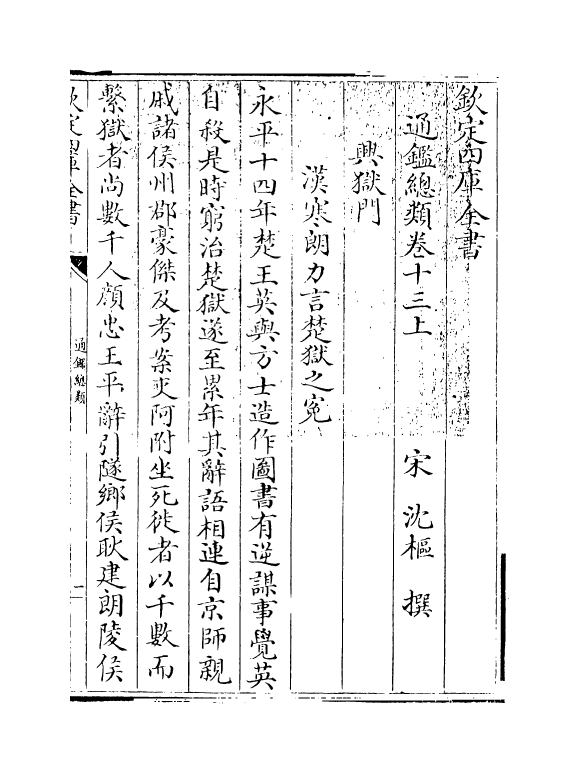 欽定四庫全書
通鑑總類卷十三上
宋 沈樞 撰
興獄門
漢寒朗力言楚獄之寃
永平十四年楚王英與方士造作圖書有逆謀事覺英
自殺是時窮治楚獄遂至累年其辭語相連自京師親
戚諸侯州郡豪傑及考案吏阿附坐死徙者以千數而
繫獄者尚數千人顔忠王平辭引隧鄉侯耿建朗陵侯
欽定四庫全書
通鑑總類